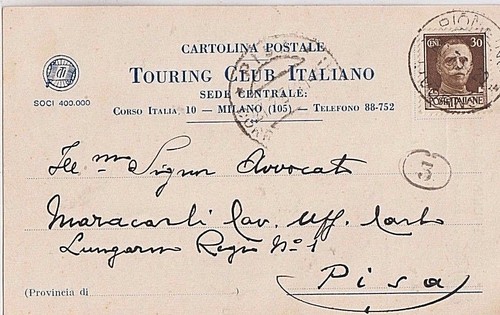 CARTOLINA POSTALE
TOURING CLUB ITALIANO
SEDE CENTRALE:
CORSO ITALIA, 10 — MILANO (105) — TELEFONO 88-752
SOCI 400.000
CENT. 30
POSTE ITALIANE
PIOMBINO
31
Ill mo Signor Avvocato
Maracarli Cav. Uff. Carlo
Lungarno Regio No 1
Pisa
(Provincia di